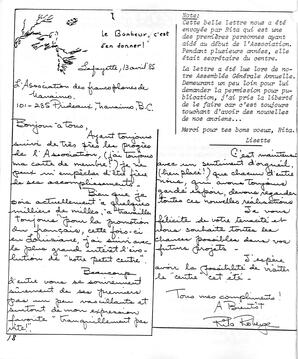 le Bonheur, c'est
d'en donner!
Lafayette, 13 avril 86
L'Association des francophones de
Nanaimo,
101-285 Prideaux, Nanaimo, B.C.
Bonjour à tous!
Ayant toujours
suivi de très près les progrès
de l'Association, (j'ai toujours
ma carte de membre!) je ne
peux m'empêcher d'être fière
de ses accomplissements.
Bien que je
sois actuellement à quelques
milliers de milles, à travailler
toujours pour la promotion
du français, cette fois-ci
en Louisiane, j'ai suivi avec
le plus grand intérêt l'évo-
lution de "votre petit centre".
Beaucoup
d'entre vous se souviennent
sûrement de ses premiers
pas un peu vacillants et
surtout de mon expression
favorite "tranquillement pas
vite!"
18
Note:
Cette belle lettre nous a été
envoyée par Rita qui est une
des premières personnes ayant
aidé au début de l'Association.
Pendant plusieurs années, elle
était secrétaire du centre.
La lettre a été lue lors de no-
tre Assemblée Générale Annuelle.
Demeurant un peu loin pour lui
demander la permission pour pu-
blication, j'ai pris la liberté
de le faire car c'est toujours
touchant d'avoir des nouvelles
de nos anciens...
Merci pour tes bons voeux, Rita.
Lisette
C'est maintenant
avec un sentiment d'orgueil,
(bien placé!) que chacun d'entre
nous, qui avons toujours
gardé espoir, devons regarder
toutes ces nouvelles réalisations
Je vous
félicite de votre ténacité et
vous souhaite toutes les
chances possibles dans vos
futurs projets.
J'espère
avoir la possibilité de visiter
le centre cet été.
Tous mes compliments!
A Bientôt
Rita Roberge